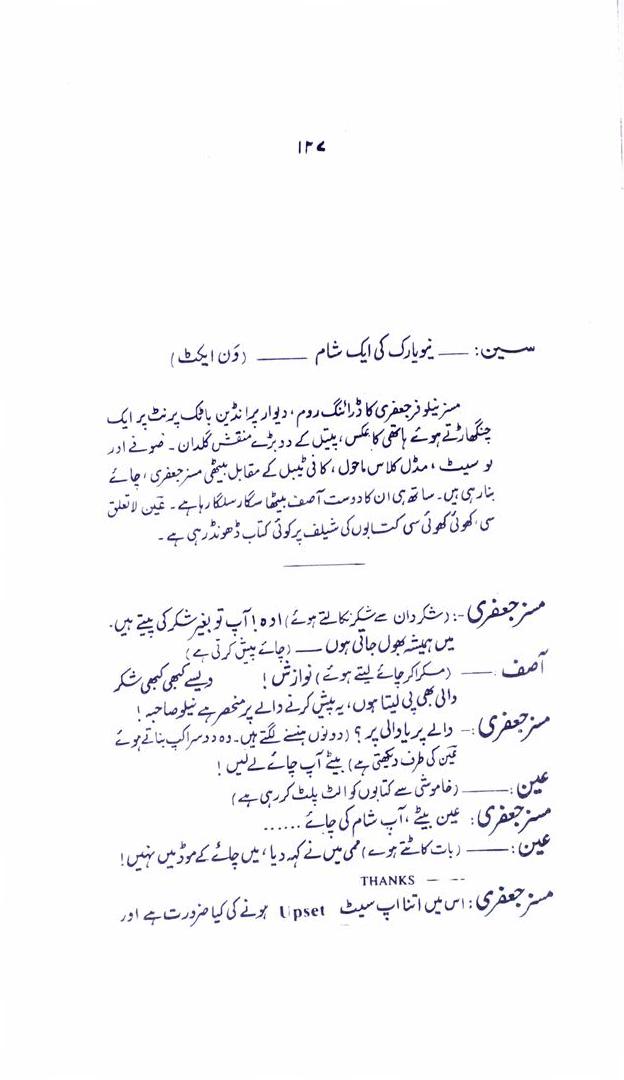 ۱۲۷
سین: — نیویارک کی ایک شام —— (وَن ایکٹ)
مسز نیلوفر جعفری کا ڈرائنگ روم، دیوار پر انڈین باٹک پرنٹ پر ایک
چنگھاڑتے ہوئے ہاتھی کا عکس، پیتل کے دو بڑے منقش گلدان۔ صوفے اور
لو سیٹ، مڈل کلاس ماحول، کافی ٹیبل کے مقابل بیٹھی مسز جعفری، چائے
بنا رہی ہیں۔ ساتھ ہی ان کا دوست آصف بیٹھا سگار سلگا رہا ہے۔ عین لاتعلق
سی، کھوئی کھوئی سی کتابوں کی شیلف پر کوئی کتاب ڈھونڈ رہی ہے۔
مسز جعفری :- (شکر دان سے شکر نکالتے ہوئے) اوہ! آپ تو بغیر شکر کی پیتے ہیں۔
میں ہمیشہ بھول جاتی ہوں —— (چائے پیش کرتی ہے)
آصف —— (مسکرا کر چائے لیتے ہوئے) نوازش! ویسے کبھی کبھی شکر
والی بھی پی لیتا ہوں، یہ پیش کرنے والے پر منحصر ہے نیلو صاحبہ!
مسز جعفری :- والے پر یا والی پر؟ (دونوں ہنسنے لگتے ہیں۔ وہ دوسرا کپ بناتے ہوئے
عین کی طرف دیکھتی ہے) بیٹے آپ چائے لے لیں!
عین :—— (خاموشی سے کتابوں کو الٹ پلٹ کر رہی ہے)
مسز جعفری : عین بیٹے، آپ شام کی چائے ......
عین :—— (بات کاٹتے ہوے) ممی میں نے کہہ دیا، میں چائے کے موڈ میں نہیں!
THANKS — --
مسز جعفری : اس میں اتنا اپ سیٹ Upset ہونے کی کیا ضرورت ہے اور